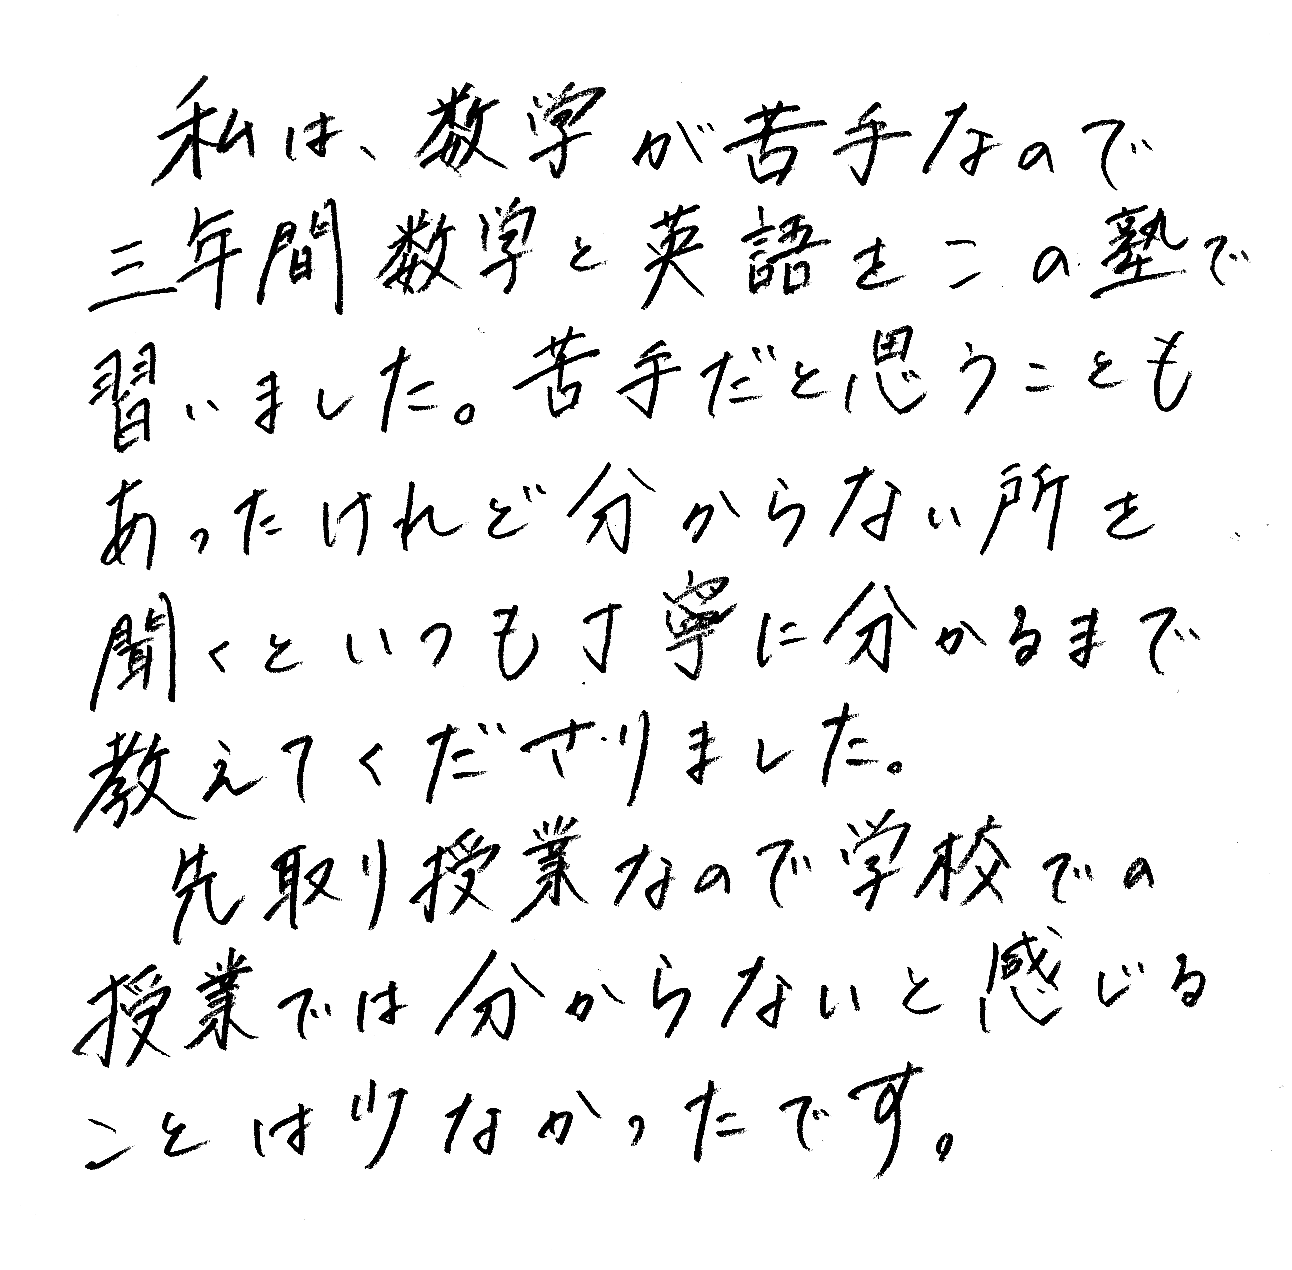 私は、数学が苦手なので
三年間数学と英語をこの塾で
習いました。苦手だと思うことも
あったけれど分からない所を
聞くといつも丁寧に分かるまで
教えてくださりました。
先取り授業なので学校での
授業では分からないと感じる
ことは少なかったです。